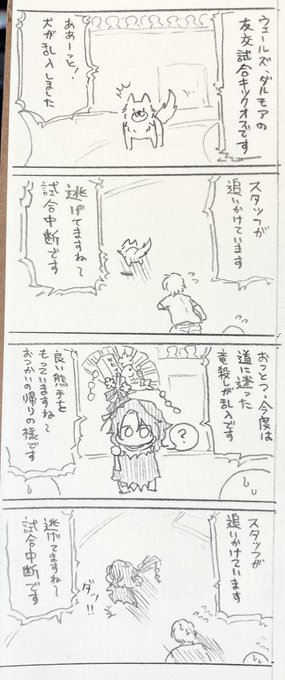 ウェールズ・ダルモアの
友交試合キックオフです
ああーっと!
犬が乱入しました
スタッフが
追いかけています
逃げてますね〜
試合中断です
おっとっ、今度は
道に迷った
竜殺しが乱入です
?
良い熊手を
もっていますね〜
おつかいの帰りの様です
スタッフが
追いかけています
ダッ!!
逃げてますね〜
試合中断です